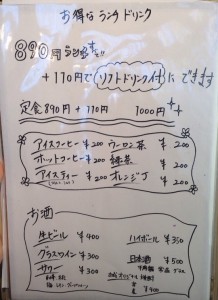 お得な ランチ ドリンク
890円
+170円で ソフトドリンク付に できます
定食 890円 + 170 1000円
アイスコーヒー ¥200 ウーロン茶 ¥200
ホットコーヒー ¥200 緑茶 ¥200
アイスティー ¥200 オレンジJ ¥200
お酒
生ビール ¥400 ハイボール ¥350
グラスワイン ¥300 日本酒 ¥500
サワー ¥300
¥900